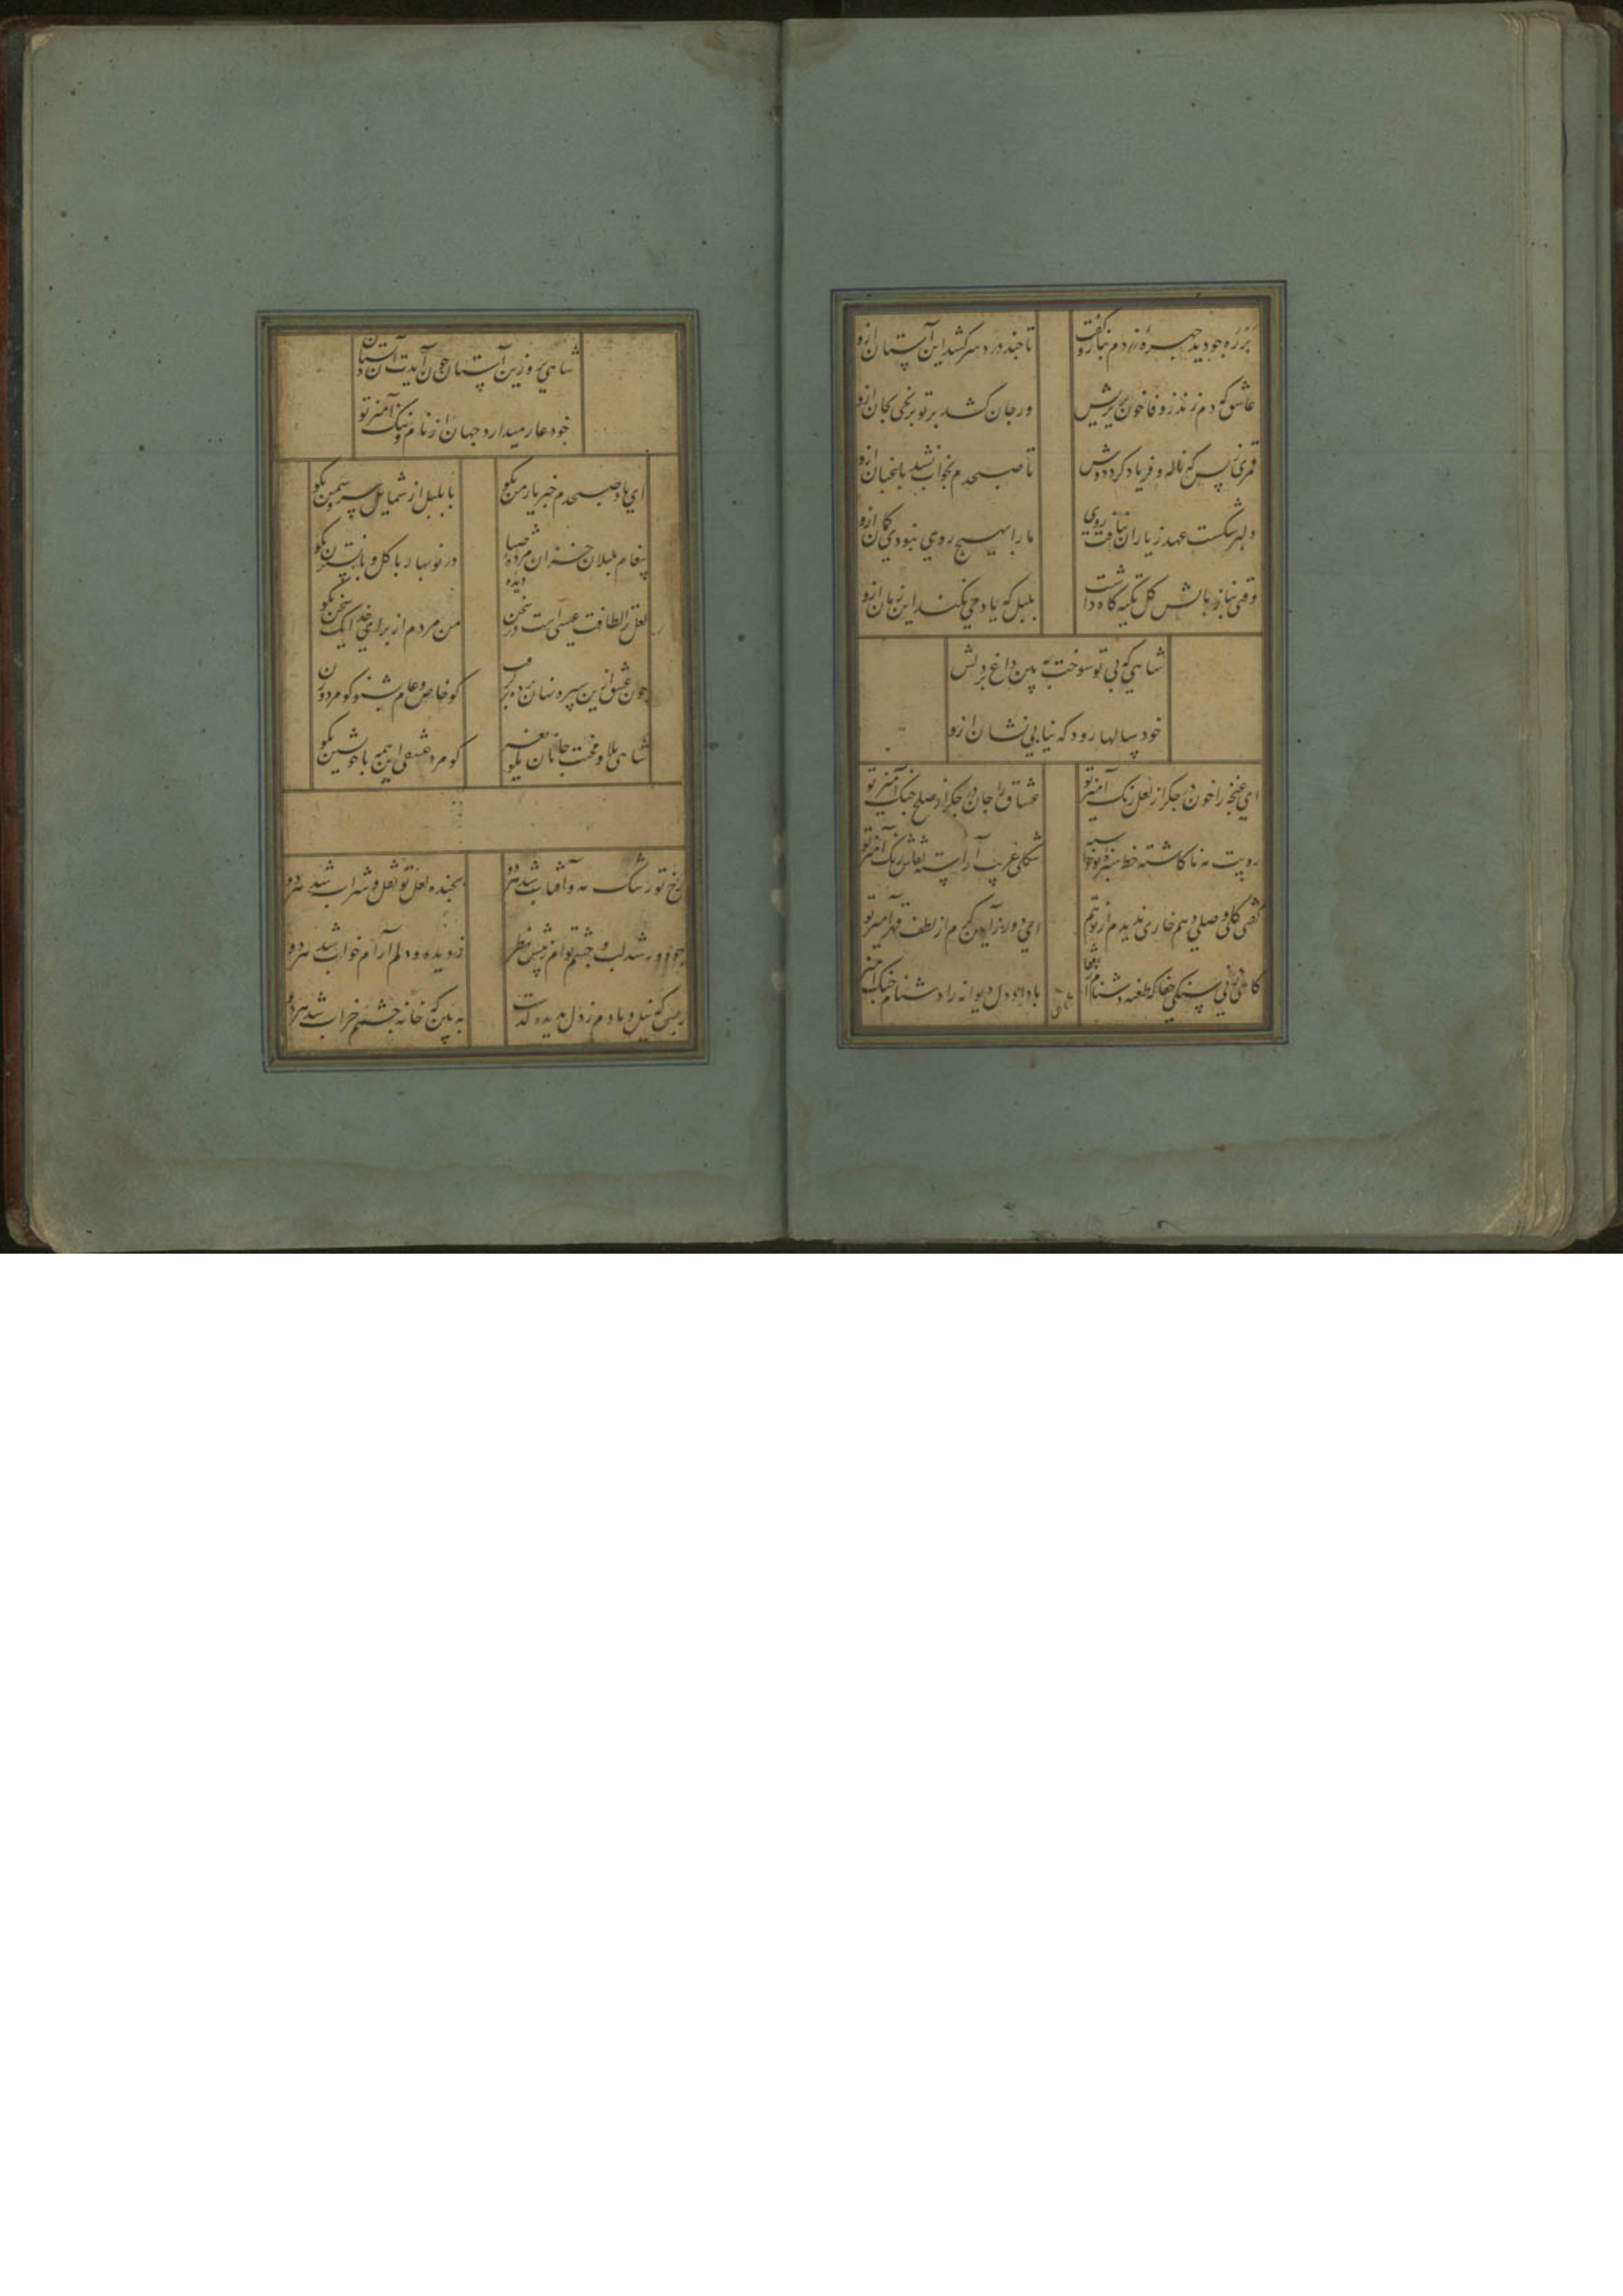 بر ره چو دید چهره زردم بناز گفت
تا چند درد سر کشد این آستان ازو
عاشق که دم زند ز وفا خون بریزش
ور جان کشد بر تو برنجی بجان ازو
قمری ز بس که ناله و فریاد کرد دوش
تا صبحدم بخواب نشد باغبان ازو
دلبر شکست عهد ز یاران بتافت روی
ما را بهیچ روی نبود این گمان ازو
وقتی بناز بالش گل تکیه گاه داشت
بلبل که یاد می نکند این زمان ازو
شاهی که بی تو سوخت به بین داغ بر دلش
خود سالها رود که نیابی نشان ازو
ای غنچه را خون در جکر از لعل رنک آمیز تو
عشاق را جان در خطر از صلح جنک آمیز تو
رویت مه ناکاسته خط سبزه نوخاسته
شکلی غریب آراسته نقاش رنک آمیز تو
گفتی کلی وصلی دهم خاری ندیدم از تو هم
ای دور از آیین کرم از لطف قهر آمیز تو
شاهی
شاهی برو زین آستان چون آیدت آن دلستان
خود عار میدارد جهان از نام و ننک آمیز تو
ای باد صبحدم خبر یار من بکو
با بلبل از شمایل سرو سمن بکو
پیغام بلبلان خزان مرده ای صبا
در نوبهار با کل و با نسترن بکو
لعلش ز لطافت عیسی است در سخن
من مردم از برای خدا یک سخن بکو
چون عشق ازین سپرده نهان پرده بر کرفت
کو خاص و عام بشنو و کو مرد و زن
شاهی بلا و محنت جانان
کو مرد عشقی این همه با خویشتن بکو
رخ تو رشک مه و آفتاب شد هر دو
بخنده لعل تو نقل و شراب شد هر دو
چو دور شد لب و چشم تو ام ز پیش نظر
ز دیده و دلم آرام و خواب شد هر دو
به بین که خانه چشمم خراب شد هر دو